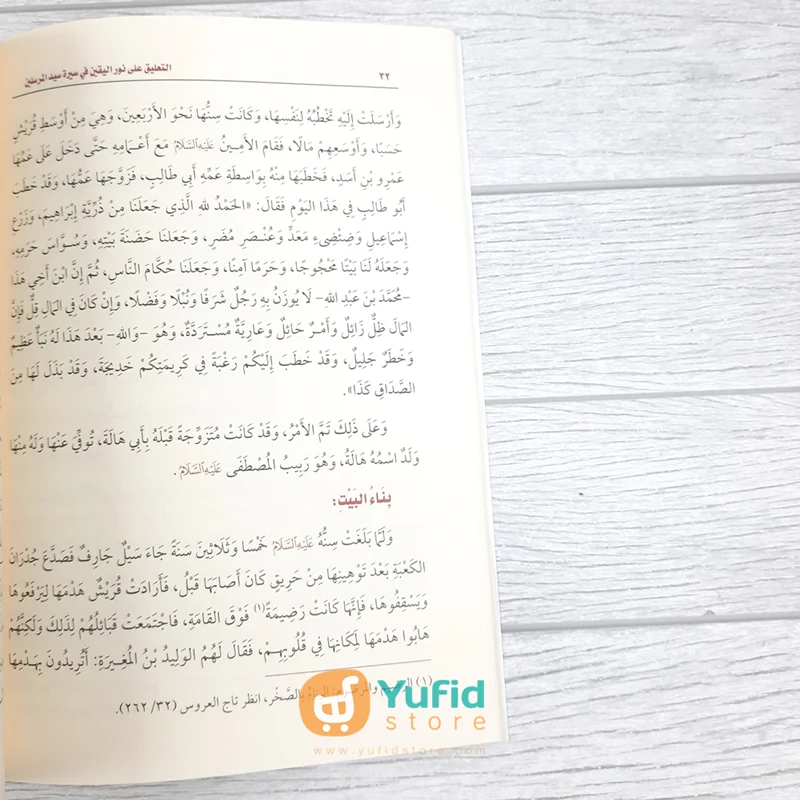 ٣٢
التعليق على نور اليقين في سيرة سيد المرسلين
وَأَرْسَلَتْ إِلَيْهِ تَخْطُبُهُ لِنَفْسِهَا، وَكَانَتْ سِنُّهَا نَحْوَ الأَرْبَعِينَ، وَهِيَ مِنْ أَوْسَطِ قُرَيْشٍ
حَسَبًا، وَأَوْسَعِهِمْ مَالًا، فَقَامَ الأَمِينُ عَلَيْهِ السَّلَامُ مَعَ أَعْمَامِهِ حَتَّى دَخَلَ عَلَى عَمِّهَا
عَمْرِو بْنِ أَسَدٍ، فَخَطَبَهَا مِنْهُ بِوَاسِطَةِ عَمِّهِ أَبِي طَالِبٍ، فَزَوَّجَهَا عَمُّهَا، وَقَدْ خَطَبَ
أَبُو طَالِبٍ فِي هَذَا اليَوْمِ فَقَالَ: «الحَمْدُ لله الَّذِي جَعَلَنَا مِنْ ذُرِّيَّةِ إِبْرَاهِيمَ، وَزَرْعِ
إِسْمَاعِيلَ وَضِئْضِيءِ مَعَدٍّ وَعُنْصُرِ مُضَرَ، وَجَعَلَنَا حَضَنَةَ بَيْتِهِ، وَسُوَّاسَ حَرَمِهِ،
وَجَعَلَهُ لَنَا بَيْتًا مَحْجُوجًا، وَحَرَمًا آمِنًا، وَجَعَلَنَا حُكَّامَ النَّاسِ، ثُمَّ إِنَّ ابْنَ أَخِي هَذَا
-مُحَمَّدَ بْنَ عَبْدِ اللهِ- لَا يُوزَنُ بِهِ رَجُلٌ شَرَفًا وَنُبْلًا وَفَضْلًا، وَإِنْ كَانَ فِي المَالِ قِلٌّ فَإِنَّ
المَالَ ظِلٌّ زَائِلٌ وَأَمْرٌ حَائِلٌ وَعَارِيَّةٌ مُسْتَرَدَّةٌ، وَهُوَ -وَاللهِ- بَعْدَ هَذَا لَهُ نَبَأٌ عَظِيمٌ
وَخَطَرٌ جَلِيلٌ، وَقَدْ خَطَبَ إِلَيْكُمْ رَغْبَةً فِي كَرِيمَتِكُمْ خَدِيجَةَ، وَقَدْ بَذَلَ لَهَا مِنَ
الصَّدَاقِ كَذَا».
وَعَلَى ذَلِكَ تَمَّ الأَمْرُ، وَقَدْ كَانَتْ مُتَزَوِّجَةً قَبْلَهُ بِأَبِي هَالَةَ، تُوفِّيَ عَنْهَا وَلَهُ مِنْهَا
وَلَدٌ اسْمُهُ هَالَةُ، وَهُوَ رَبِيبُ المُصْطَفَى عَلَيْهِ السَّلَامُ.
بِنَاءُ البَيْتِ:
وَلَمَّا بَلَغَتْ سِنُّهُ عَلَيْهِ السَّلَامُ خَمْسًا وَثَلَاثِينَ سَنَةً جَاءَ سَيْلٌ جَارِفٌ فَصَدَّعَ جُدْرَانَ
الكَعْبَةِ بَعْدَ تَوْهِينِهَا مِنْ حَرِيقٍ كَانَ أَصَابَهَا قَبْلُ، فَأَرَادَتْ قُرَيْشٌ هَدْمَهَا لِيَرْفَعُوهَا
وَيَسْقِفُوهَا، فَإِنَّهَا كَانَتْ رَضِيمَةً(١) فَوْقَ القَامَةِ، فَاجْتَمَعَتْ قَبَائِلُهُمْ لِذَلِكَ وَلَكِنَّهُمْ
هَابُوا هَدْمَهَا لِمَكَانِهَا فِي قُلُوبِهِمْ، فَقَالَ لَهُمُ الوَلِيدُ بْنُ المُغِيرَةِ: أَتُرِيدُونَ بِهَدْمِهَا
(١) بِالصَّخْرِ، انظر تاج العروس (٣٢/ ٢٦٢).
Yufid
store
www.yufidstore.com